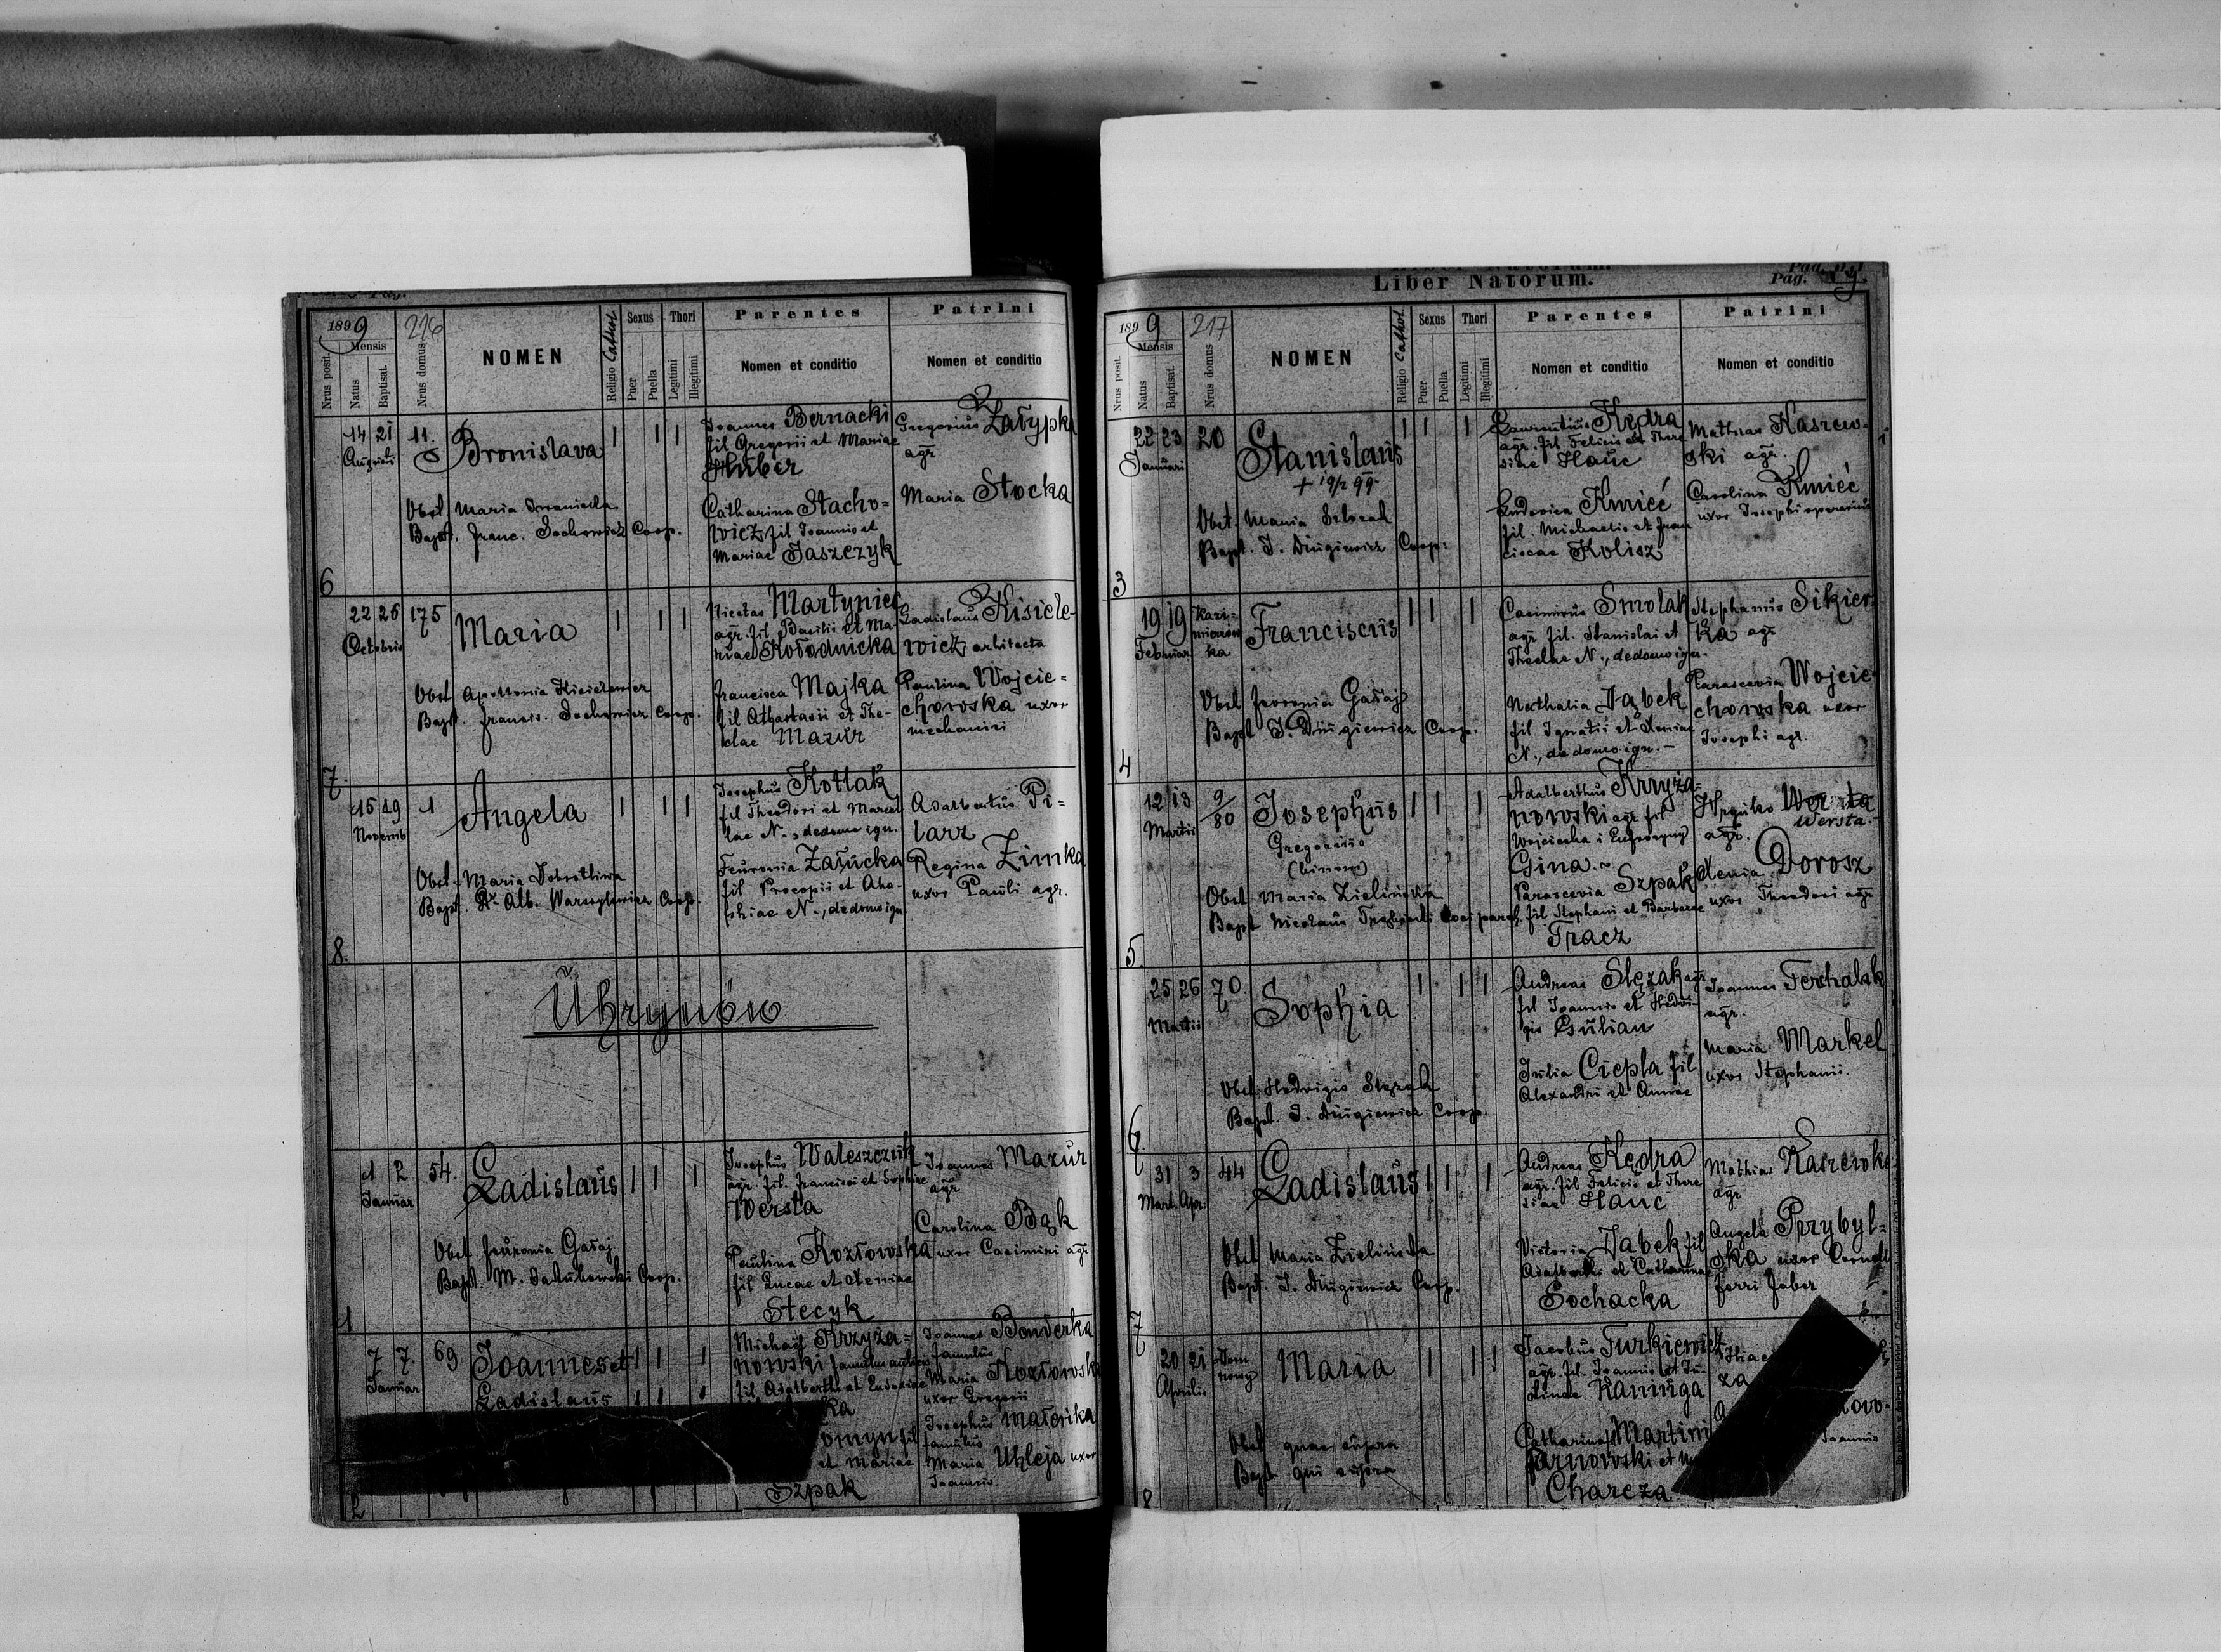 1899
216
Nrus posit.
Mensis
Natus
Baptisat.
Nrus domus
NOMEN
Religio Cathol.
Sexus
Puer
Puella
Thori
Legitimi
Illegitimi
Parentes
Nomen et conditio
Patrini
Nomen et conditio
6
14 21
Augusti
11.
Bronislava
Obst. Maria
Bapt. Franc. Sochowicz Coop.
Joannes Bernacki
fil Gregorii et Mariae
Huber
Catharina Stacho-
wicz fil Joannis et
Mariae Jaszczyk
Gregorius Załypka
agr
Maria Stocka
7
22 26
Octobris
175
Maria
Obst Apollonia
Bapt. Francis. Sochowicz Coop.
Nicetas Martyniec
agr. fil. Basilii et Ma-
riae Kołodnicka
Francisca Majka
fil Athanasii et The-
clae Mazur
Ladislaus Kisiele-
wicz arhitecta
Paulina Wojcie-
chowska uxor
mechanici
8.
15 19
Novemb
1
Angela
Obst. Maria Dobrotliwa
Bapt. Alb. Coop.
Josephus Kotlak
fil Theodori et Marcel
lae N., de domo ign.
Feuronia Załucka
fil Procopii et Aha-
phiae N., de domo ign
Adalbertus Pi-
larz
Regina Zimka
uxor Pauli agr.
Uhrynów
1
1 2
Januar
54.
Ladislaus
Obst Feuronia Gałaj
Bapt. M. Jakubowski Coop.
Josephus Waleszczuk
agr. fil. Francisci et Sophiae
Wersta
Paulina Kozłowska
fil Lucae et Xeniae
Stecyk
Joannes Mazur
agr
Carolina Bąk
uxor Casimiri agr
2
7 7.
Januar
69
Joannes et
Ladislaus
Michael Krzyża-
nowski
fil Adalberti et
et Mariae
Szpak
Joannes Bonderka
famulus
Maria Kozłowska
uxor Gregorii
Josephus Materika
famulus
Maria Uhleja uxor
Joannis.
Liber Natorum.
Pag.
1899
217
Nrus posit.
Mensis
Natus
Baptisat.
Nrus domus
NOMEN
Religio Cathol.
Sexus
Puer
Puella
Thori
Legitimi
Illegitimi
Parentes
Nomen et conditio
Patrini
Nomen et conditio
3
22 23
Januari
20
Stanislaus
+ 19/2 99
Obst. Maria
Bapt. J. Długiewicz Coop.
Laurentius Kędra
agr. fil Felicis et There
siae Hauc
Ludovica Kmieć
fil. Michaelis et Fran
ciscae Kolisz
Mathias Kaszew-
ski agr.
Carolina Kmieć
uxor Josephi operarius
4
19 19
Februar
Kazi-
mierów
ka
Franciscus
Obst Fevronia Gałaj
Bapt J. Długiewicz Coop.
Casimirus Smolak
agr. fil. Stanislai et
Theclae N., de domo ign.
Nathalia Jąbek
fil Ignatii et Xeniae
N., de domo ign.
Stephanus Sikier
ka agr
Parascevia Wojcie
chowska uxor
Josephi agr.
5
12 13
Martii
9/80
Josephus
Gregorius
(binom)
Obst Maria Zielińska
Bapt Nicolaus loci paroch.
Adalberthus Krzyża-
nowski agr fil
Wojciecha i Eufrozyny
Gina
Parascevia Szpak
fil Stephani et Barbarae
Tracz
Hryńko Wersta
Wersta
agr.
Xenia Dorosz
uxor Theodori agr
6
25 26
Martii
70
Sophia
Obst Hedvigis Slęzak
Bapt. J. Długiewicz Coop.
Andreas Slęzak agr
fil Joannis et Hedvi-
gis Csulian
Julia Ciepla fil
Alexandri et Annae
Joannes Ferchalak
agr.
Maria Markel
uxor Stephani.
7
31 3
Mart. Apr.
44
Ladislaus
Obst Maria Zielińska
Bapt. J. Długiewicz Coop.
Andreas Kędra
agr. fil Felicis et There
siae Hauc
Victoria Jabek fil
Adalberti et Catharinae
Sochacka
Mathias Kaszewski
agr
Angela Przybyl-
ska uxor
ferri faber
8
20 21
Aprilis
Maria
Obst quae supra
Bapt qui supra
Jacobus Turkiewicz
agr. fil. Joannis et Ju-
linae Kaniuga
Catharina Martini
Tarnowski et
Charcza
za
kovo-
Joannis